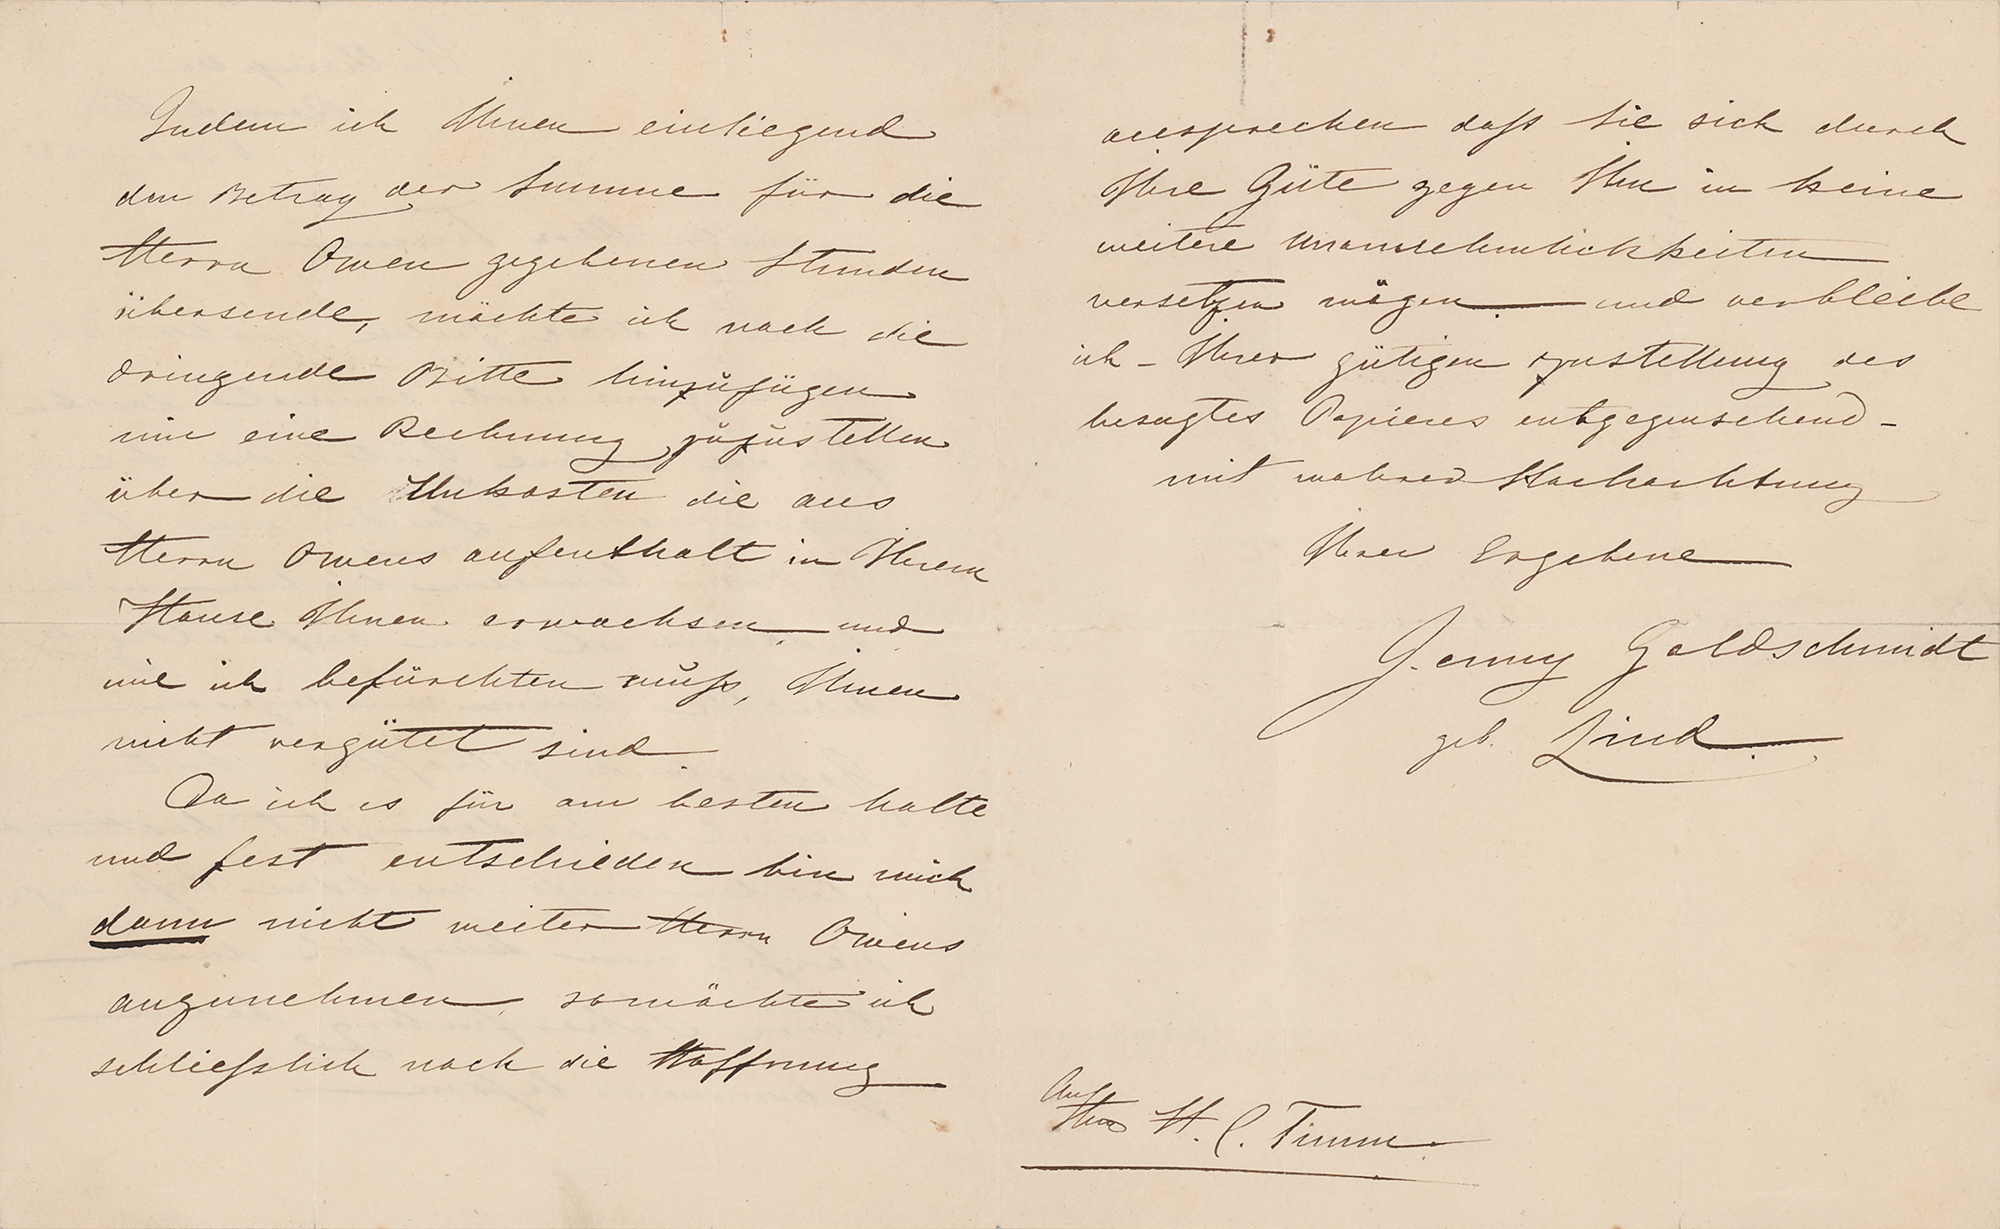 Indem ich Ihnen einliegend
den Betrag der Summe für die
Herrn Owen gegebenen Stunden
übersende, möchte ich noch die
dringende Bitte hinzufügen
mir eine Rechnung zuzustellen
über die Unkosten die aus
Herrn Owens aufenthalt in Ihrem
Hause Ihnen erwachsen und
wie ich befürchten muß, Ihnen
nicht vergütet sind.
Da ich es für am besten halte
und fest entschieden bin mich
dann nicht weiter Herrn Owens
anzunehmen, so möchte ich
schließlich noch die Hoffnung
aussprechen daß Sie sich durch
Ihre Güte gegen Ihn in keine
weitere Unannehmlichkeiten
versetzen mögen und verbleibe
ich - Ihrer gütigen Zustellung des
besagtes Papieres entgegensehend -
mit wahrer Hochachtung
Ihre Ergebene
Jenny Goldschmidt
geb. Lind.
An
H. C. Timm.